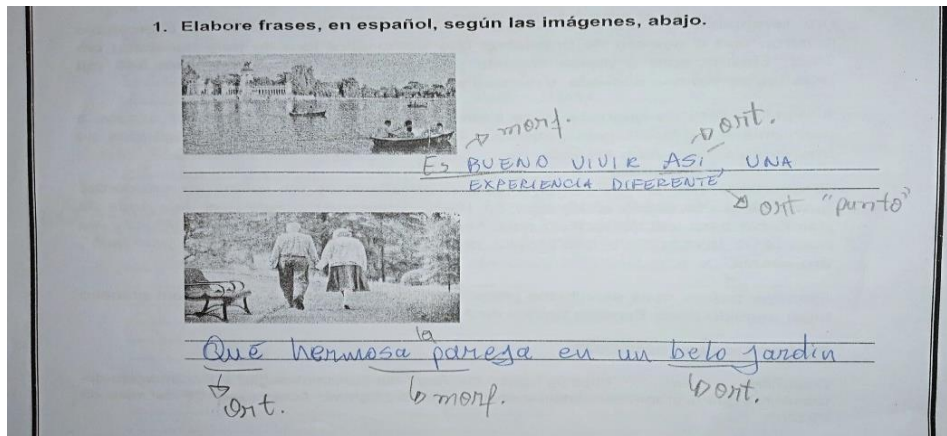 1. Elabore frases, en español, según las imágenes, abajo.
morf.
ort.
Es BUENO VIVIR ASÍ, UNA
EXPERIENCIA DIFERENTE
ort "punto"
la
Que hermosa pareja en un belo jardin
Ort.
morf.
ort.